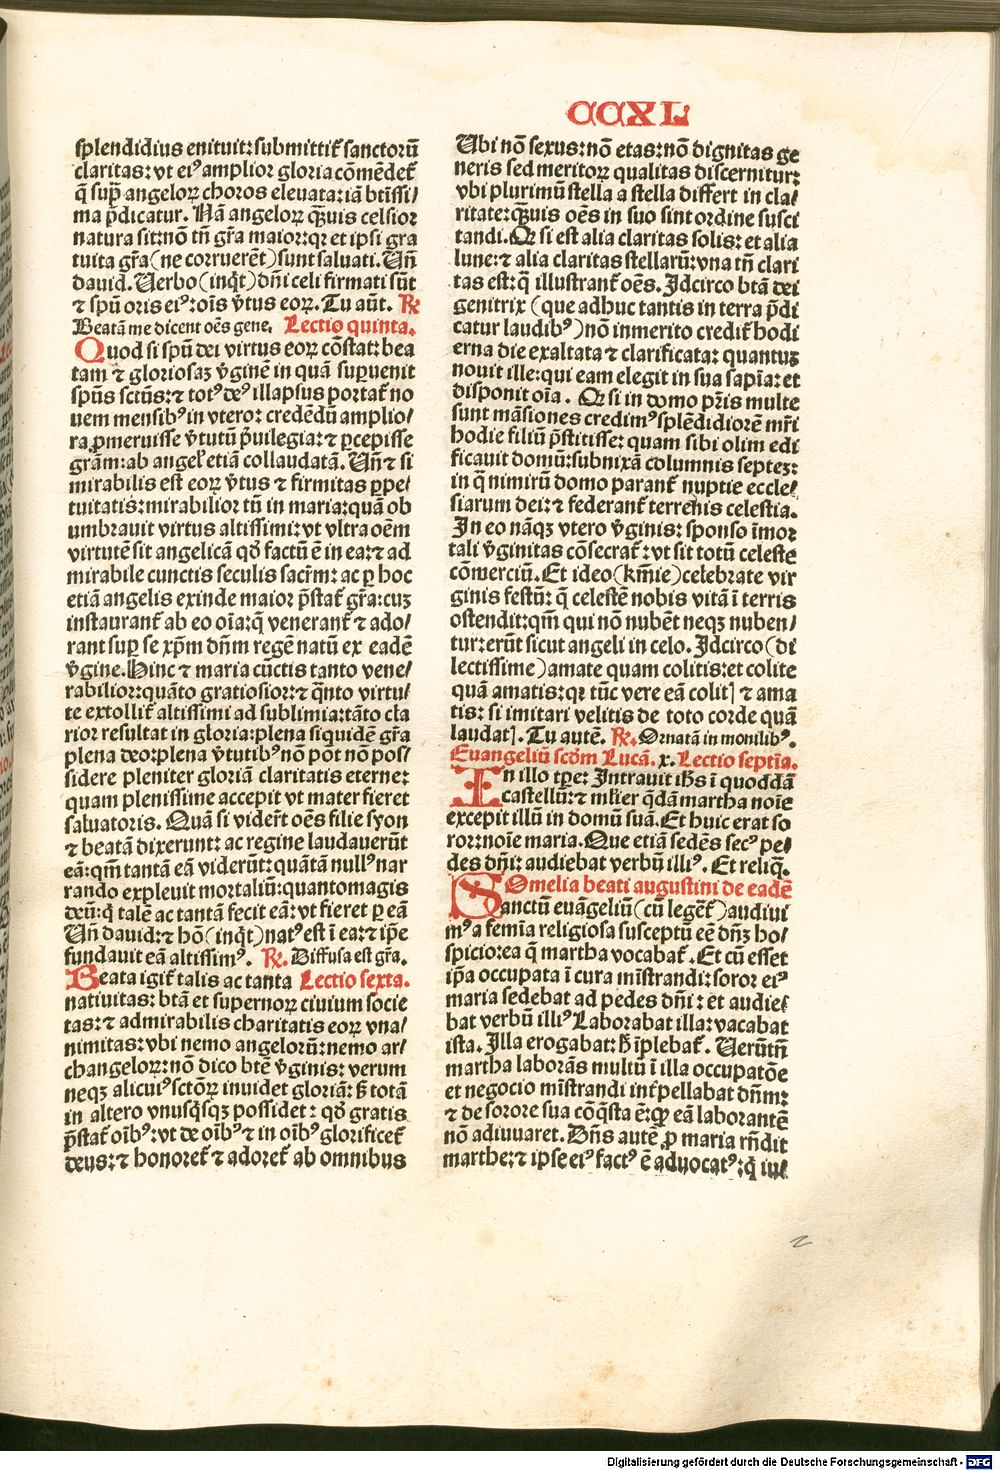 CCXL
splendidius enituit: submittit̃ sanctorũ
claritas: vt ei⁹ amplior gloria cõmẽdet̃
q̃ supra angeloꝝ choros eleuata: iã btĩssi/
ma p̃dicatur. Nã angeloꝝ q̃uis celsior
natura sit: nõ tñ gr̃a maior: qꝛ et ipsi gra
tuita gr̃a (ne corruerẽt) sunt saluati. Uñ
dauid. Uerbo (inq̃t) dñi celi firmati sũt
⁊ spũ oris ei⁹: oĩs ṽtus eoꝝ. Tu aũt. ℟
Beatã me dicent oẽs gene. Lectio quinta.
Quod si spũ dei virtus eoꝝ cõstat: bea
tam ⁊ gloriosaꝫ ṽginẽ in quã supuenit
spũs sctũs: ⁊ tot⁹ de⁹ illapsus portat̃ no
uem mensib⁹ in vtero: credẽdũ amplio/
ra ꝓmeruisse ṽtutũ p̃uilegia: ⁊ ꝑcepisse
grãm: ab angel̃ etiã collaudatã. Uñ ⁊ si
mirabilis est eoꝝ ṽtus ⁊ firmitas ꝑpe/
tuitatis: mirabilior tñ in maria: quã ob
umbrauit virtus altissimi: vt vltra oẽm
virtutẽ sit angelicã qð factũ ẽ in ea: ⁊ ad
mirabile cunctis seculis sacr̃m: ac ꝑ hoc
etiã angelis exinde maior p̃stat̃ gr̃a: cuꝫ
instaurant̃ ab eo oĩa: q̃ venerant̃ ⁊ ado/
rant super se xp̃m dñm regẽ natũ ex eadẽ
ṽgine. Hinc ⁊ maria cũctis tanto vene/
rabilior: quãto gratiosior: ⁊ q̃nto virtu/
te extollit̃ altissimi ad sublimia: tãto cla
rior resultat in gloria: plena siquidẽ gr̃a
plena deo: plena ṽtutib⁹ nõ pot nõ pos/
sidere pleniter gloriã claritatis eterne:
quam plenissime accepit vt mater fieret
saluatoris. Quã si vider̃t oẽs filie syon
⁊ beatã dixerunt: ac regine laudauerũt
eã: qm̃ tantã eã viderũt: quãtã null⁹ nar
rando expleuit mortaliũ: quantomagis
deũ: q̃ talẽ ac tantã fecit eã: vt fieret ꝑ eã
Uñ dauid: ⁊ hõ (inq̃t) nat⁹ est ĩ ea: ⁊ ip̃e
fundauit eã altissim⁹. ℟. Diffusa est gr̃a.
Beata igit̃ talis ac tanta Lectio sexta.
natiuitas: btã et supernoꝝ ciuium socie
tas: ⁊ admirabilis charitatis eoꝝ vna/
nimitas: vbi nemo angelorũ: nemo ar/
changeloꝝ: nõ dico btẽ ṽginis: verum
neqꝫ alicui⁹ sctõꝝ inuidet gloriã: ß totã
in altero vnusq̃sqꝫ possidet: qð gratis
p̃stat̃ oĩb⁹: vt de oĩb⁹ ⁊ in oĩb⁹ glorificet̃
deus: ⁊ honoret̃ ⁊ adoret̃ ab omnibus
Ubi nõ sexus: nõ etas: nõ dignitas ge
neris sed meritoꝝ qualitas discernitur:
vbi plurimũ stella a stella differt in cla/
ritate: q̃uis oẽs in suo sint ordine susci
tandi. Qꝛ si est alia claritas solis: et alia
lune: ⁊ alia claritas stellarũ: vna tñ clari
tas est: q̃ illustrant̃ oẽs. Idcirco btã dei
genitrix (que adhuc tantis in terra p̃di
catur laudib⁹) nõ inmerito credit̃ hodi
erna die exaltata ⁊ clarificata: quantuꝫ
nouit ille: qui eam elegit in sua sapĩa: et
disponit oĩa. Qꝛ si in domo pr̃is multe
sunt mãsiones credim⁹ splẽdidiorẽ mr̃i
hodie filiũ p̃stitisse: quam sibi olim edi
ficauit domũ: subnixã columnis septeꝫ:
in q̃ nimirũ domo parant̃ nuptie eccle/
siarum dei: ⁊ federant̃ terrenis celestia.
In eo nãqꝫ vtero ṽginis: sponso ĩmor
tali ṽginitas cõsecrat̃: vt sit totũ celeste
cõmerciũ. Et ideo (km̃ie) celebrate vir
ginis festũ: q̃ celestẽ nobis vitã ĩ terris
ostendit: qm̃ qui nõ nubẽt neqꝫ nuben/
tur: erũt sicut angeli in celo. Idcirco (di
lectissime) amate quam colitis: et colite
quã amatis: qꝛ tũc vere eã colitꝭ ⁊ ama
tis: si imitari velitis de toto corde quã
laudatꝭ. Tu autẽ. ℟. Ornatã in monilib⁹.
Euangeliũ scðm Lucã. x. Lectio septĩa.
In illo tp̃e: Intrauit iħs ĩ quoddã
castellũ: ⁊ mĩer q̃dã martha noĩe
excepit illũ in domũ suã. Et huic erat so
ror: noĩe maria. Que etiã sedẽs sec⁹ pe/
des dñi: audiebat verbũ illi⁹. Et reliq̃.
Omelia beati augustini de eadẽ
Sanctũ euãgeliũ (cũ leger̃t) audiui
m⁹ a femĩa religiosa susceptũ eẽ dñꝫ ho/
spicio: ea q̃ martha vocabat̃. Et cũ esset
ip̃a occupata ĩ cura mĩstrandi: soror ei⁹
maria sedebat ad pedes dñi: et audie/
bat verbũ illi⁹ Laborabat illa: vacabat
ista. Illa erogabat: ß ĩplebat̃. Uerũtñ
martha laborãs multũ ĩ illa occupatõe
et negocio mĩstrandi int̃pellabat dñm:
⁊ de sorore sua cõq̃sta ẽ: qꝛ eã laborantẽ
nõ adiuuaret. Dñs autẽ ꝓ maria rñdit
marthe: ⁊ ipse ei⁹ fact⁹ ẽ aduocat⁹: q̃ iu/
2
Digitalisierung gefördert durch die Deutsche Forschungsgemeinschaft - DFG